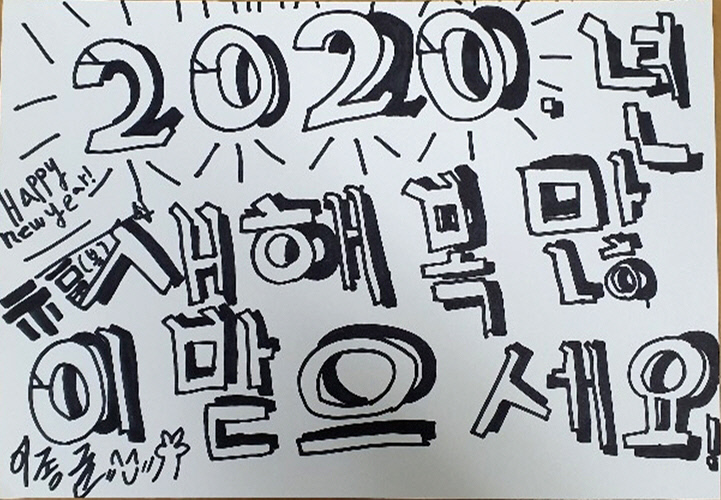 2020.년
HAPPY
new year!
새해 복 많
이 받으 세요!